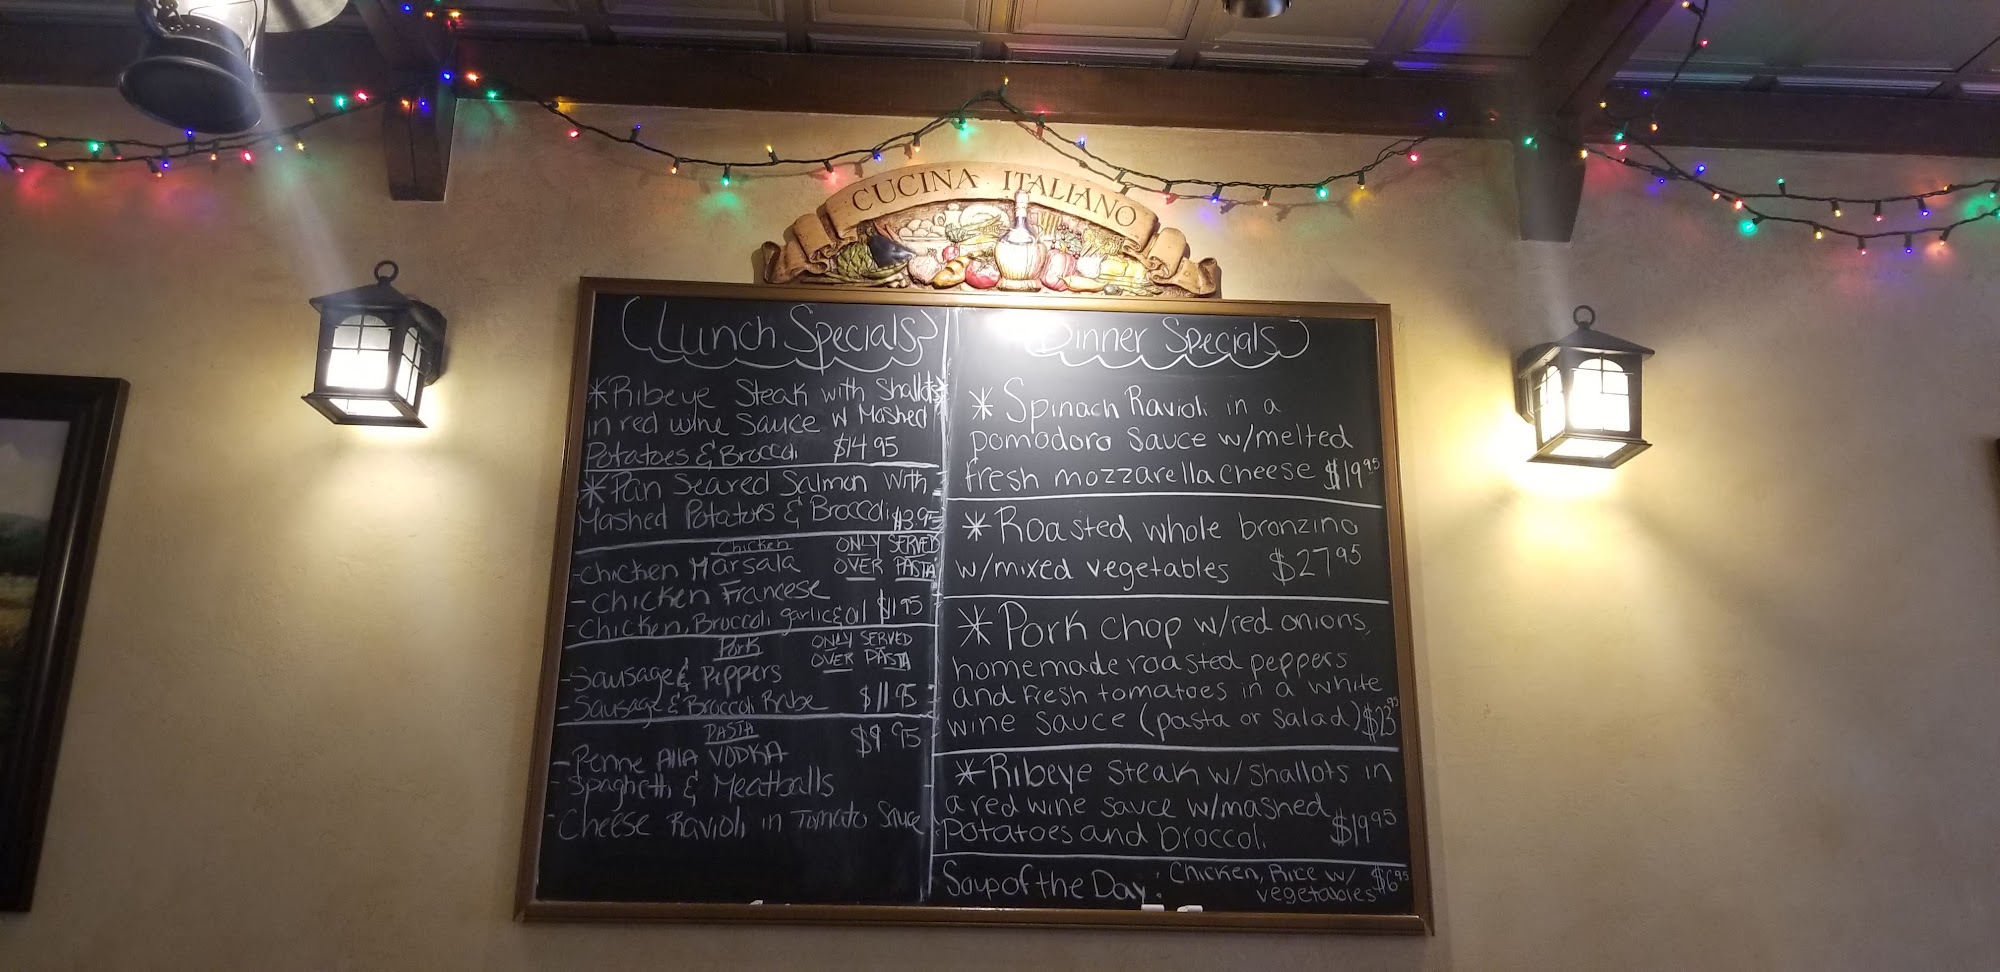 CUCINA ITALIANO
Lunch Specials
*Ribeye Steak with Shallots
in red wine Sauce W Mashed
Potatoes & Broccoli $14.95
*Pan Seared Salmon With
Mashed Potatoes & Broccoli $13.95
Chicken ONLY SERVED
-Chicken Marsala OVER PASTA
-Chicken Francese
-Chicken, Broccoli garlic & oil $11.95
Pork ONLY SERVED
OVER PASTA
-Sausage & Peppers
-Sausage & Broccoli Rabe $11.95
PASTA $9.95
-Penne Alla VODKA
-Spaghetti & Meatballs
-Cheese Ravioli in Tomato Sauce
Dinner Specials
*Spinach Ravioli in a
pomodoro Sauce w/melted
fresh mozzarella cheese $19.95
*Roasted whole bronzino
w/mixed vegetables $27.95
*Pork chop w/red onions,
homemade roasted peppers
and fresh tomatoes in a white
wine sauce (pasta or salad) $23.95
*Ribeye steak w/shallots in
a red wine sauce w/mashed
potatoes and broccoli $19.95
Soup of the Day: Chicken, Rice w/ $6.95
vegetables